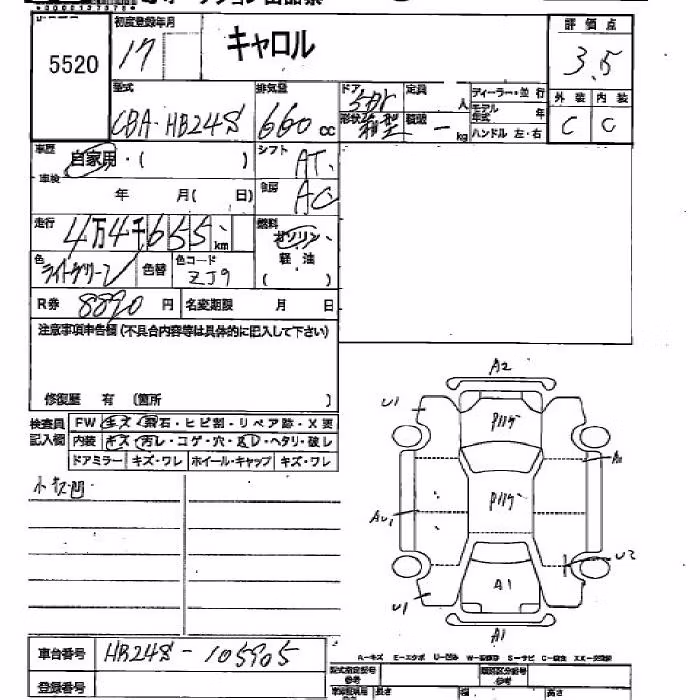 5520
初度登録年月
17
キャロル
評価点
3.5
外装 内装
C C
型式
CBA-HB24S
排気量
660 cc
ドア
5Dr
定員
人
形状
箱型
積載
— kg
ディーラー・並行
モデル年式 年
ハンドル 左・右
車歴
自家用・( )
シフト
AT
車検
年 月( 日)
冷房
AC
走行
4万4千655 km
燃料
ガソリン
軽油
( )
色
ライトグリーン
色替
色コード
ZJ9
R券 8890 円
名変期限 月 日
注意事項申告欄(不具合内容等は具体的に記入して下さい)
修復歴 有 (箇所 )
検査員
記入欄
FW キズ・飛石・ヒビ割・リペア跡・X要
内装 キズ・汚レ・コゲ・穴・返し・ヘタリ・破レ
ドアミラー キズ・ワレ ホイール・キャップ キズ・ワレ
小キズ凹
A2
U1
A1
AU1
U2
U1
A1
A1
車台番号
HB24S-105905
登録番号
A-キズ E-エクボ U-凹み
型式指定番号
類別区分番号
参考
長さ 幅 高さ